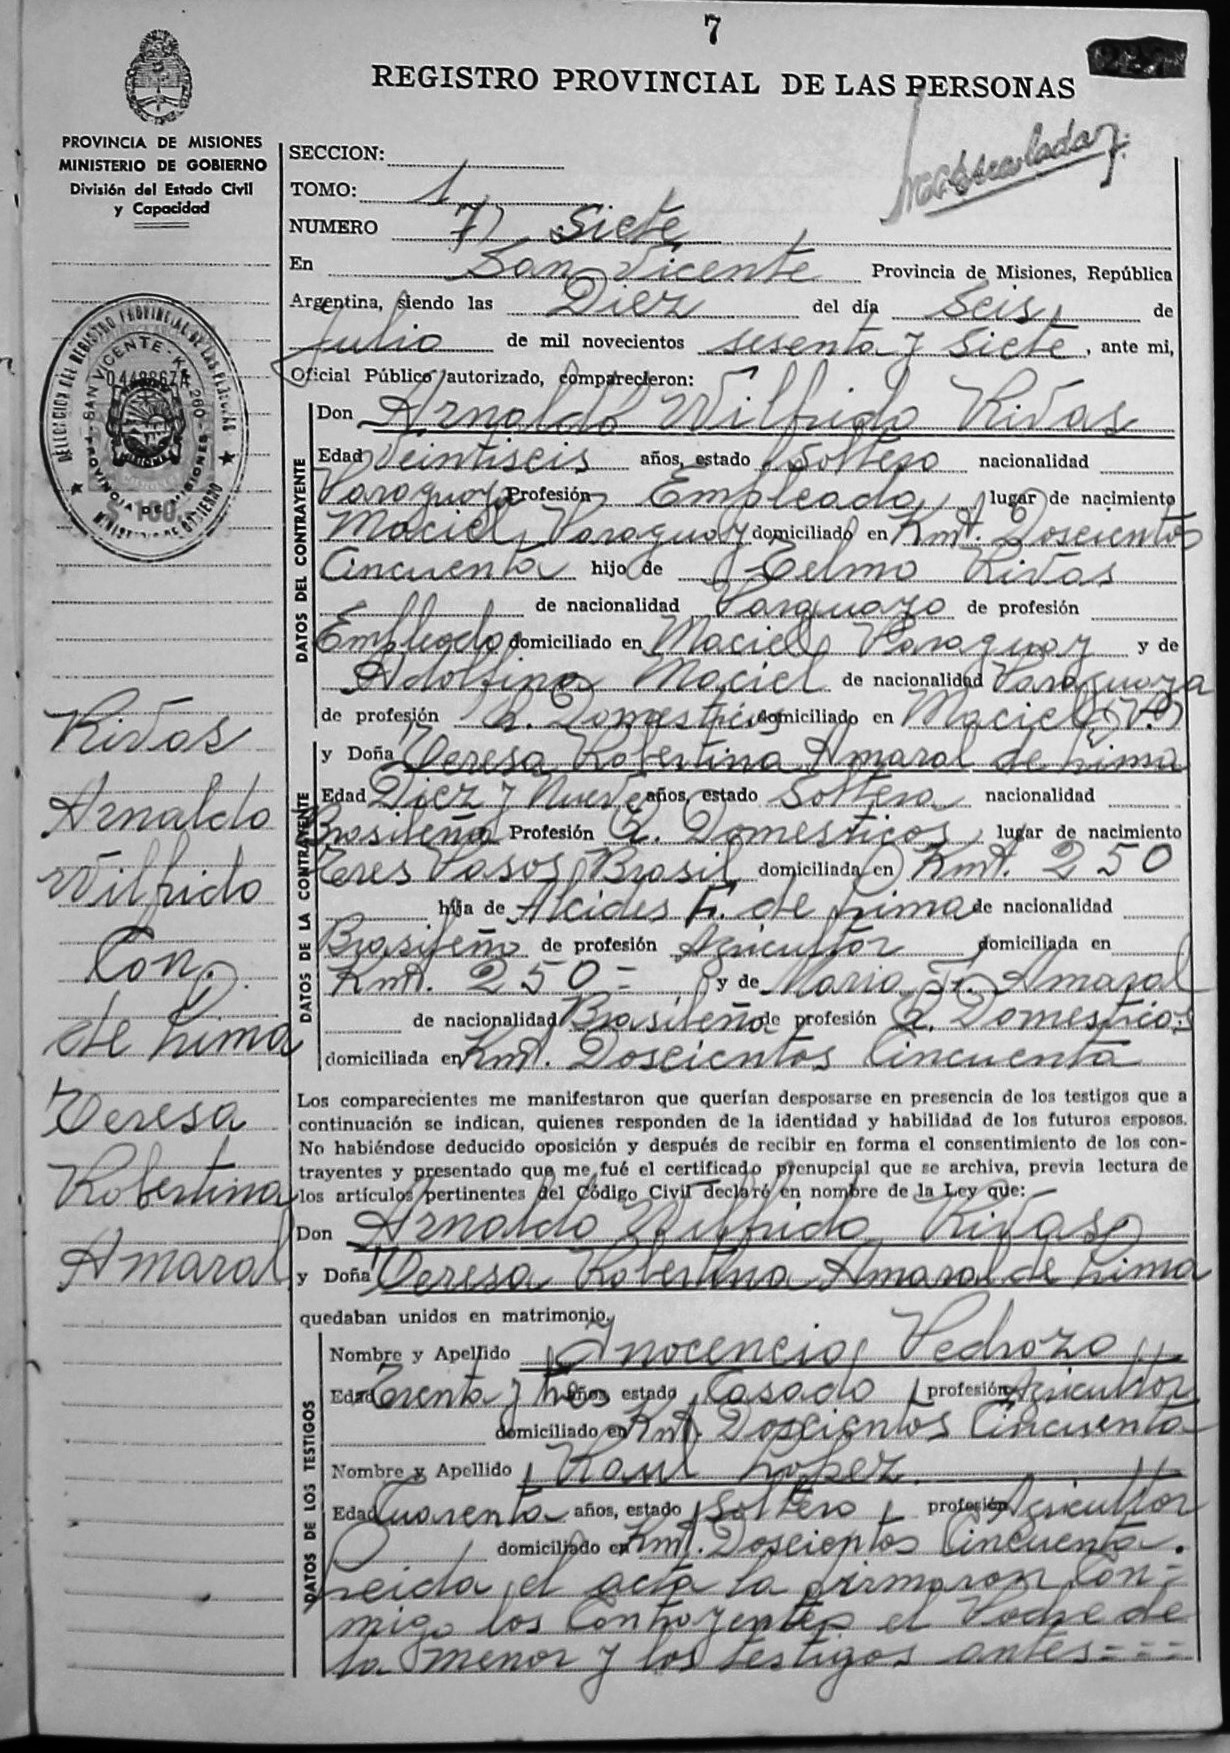 7
REGISTRO PROVINCIAL DE LAS PERSONAS
PROVINCIA DE MISIONES
MINISTERIO DE GOBIERNO
División del Estado Civil
y Capacidad
SECCION:
TOMO: 1
NUMERO 7) Siete
En San Vicente Provincia de Misiones, República
Argentina, siendo las Diez del día Seis de
Julio de mil novecientos sesenta y Siete, ante mi,
Oficial Público autorizado, comparecieron:
DELEGACION DEL REGISTRO PROVINCIAL DE LAS PERSONAS
SAN VICENTE - Km 260
PROVINCIA DE MISIONES
MINISTERIO DE GOBIERNO
DATOS DEL CONTRAYENTE
Don Arnaldo Wilfrido Rivas
Edad Veintiseis años, estado Soltero nacionalidad
Paraguayo Profesión Empleado, lugar de nacimiento
Maciel, Paraguay domiciliado en Kmt. Doscientos
Cincuenta hijo de Telmo Rivas
de nacionalidad Paraguayo de profesión
Empleado domiciliado en Maciel Paraguay y de
Adolfina Maciel de nacionalidad Paraguaya
de profesión Q. Domesticos domiciliado en Maciel (P.)
DATOS DE LA CONTRAYENTE
y Doña Teresa Robertina Amaral de Lima
Edad Diez y Nueve años, estado Soltera nacionalidad
Brasileña Profesión Q. Domesticos, lugar de nacimiento
Tres Pasos Brasil domiciliada en Kmt. 250
hija de Alcides F. de Lima de nacionalidad
Brasileño de profesión Agricultor domiciliada en
Kmt. 250 = y de Maria F. Amaral
de nacionalidad Brasileña de profesión Q. Domesticos
domiciliada en Kmt. Doscientos Cincuenta
Rivas
Arnaldo
Wilfrido
Con.
de Lima
Teresa
Robertina
Amaral
Los comparecientes me manifestaron que querían desposarse en presencia de los testigos que a
continuación se indican, quienes responden de la identidad y habilidad de los futuros esposos.
No habiéndose deducido oposición y después de recibir en forma el consentimiento de los con-
trayentes y presentado que me fué el certificado prenupcial que se archiva, previa lectura de
los artículos pertinentes del Código Civil declaró en nombre de la Ley que:
Don Arnaldo Wilfrido Rivas
y Doña Teresa Robertina Amaral de Lima
quedaban unidos en matrimonio.
DATOS DE LOS TESTIGOS
Nombre y Apellido Inocencio Pedrozo
Edad Trenta y tres años estado Casado, profesión Agricultor
domiciliado en Kmt. Doscientos Cincuenta
Nombre y Apellido Raul Lopez.
Edad Cuarenta años, estado Soltero, profesión Agricultor
domiciliado en Kmt. Doscientos Cincuenta.
Leida el acta la firmaron con-
migo los Contrayentes el Padre de
la menor y los testigos antes = = =